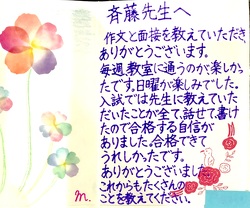 斉藤先生へ
作文と面接を教えていただき
ありがとうございます。
毎週教室に通うのが楽しか
たです。日曜が楽しみでした。
入試では先生に教えていた
だいたことが全て、話せて書け
たので合格する自信が
ありました。合格できて
うれしかったです。
ありがとうございました
これからもたくさんの
ことを教えてください。
m.